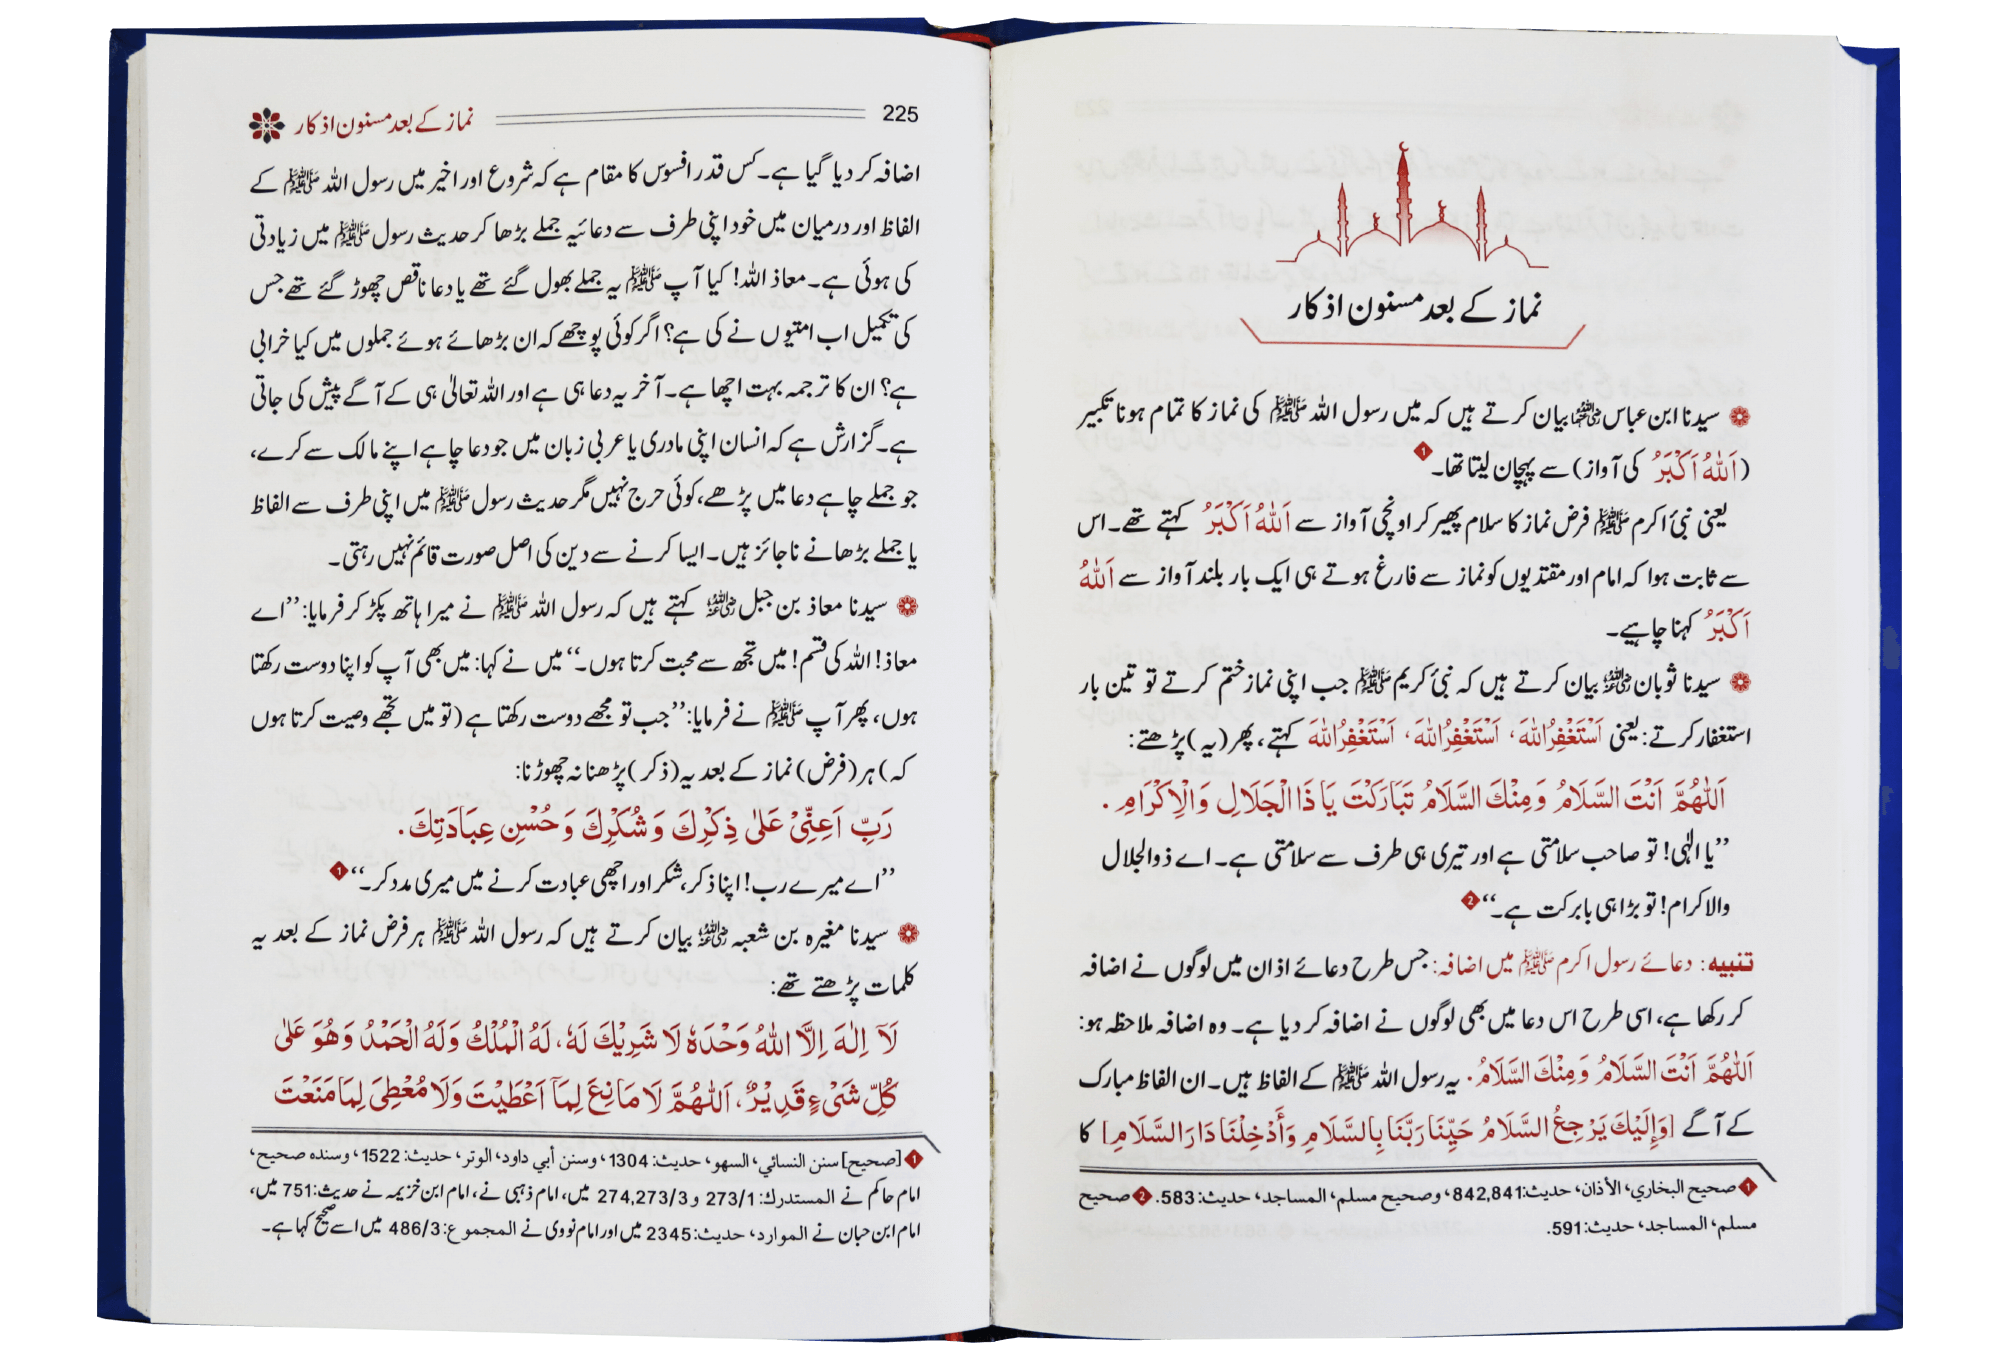 نماز کے بعد مسنون اذکار
سیدنا ابن عباس رضی اللہ عنہما بیان کرتے ہیں کہ میں رسول اللہ ﷺ کی نماز کا تمام ہونا تکبیر
(اَللّٰهُ اَكْبَرُ کی آواز) سے پہچان لیتا تھا۔ 1
یعنی نبیٔ اکرم ﷺ فرض نماز کا سلام پھیر کر اونچی آواز سے اَللّٰهُ اَكْبَرُ کہتے تھے۔ اس
سے ثابت ہوا کہ امام اور مقتدیوں کو نماز سے فارغ ہوتے ہی ایک بار بلند آواز سے اَللّٰهُ
اَكْبَرُ کہنا چاہیے۔
سیدنا ثوبان رضی اللہ عنہ بیان کرتے ہیں کہ نبیٔ کریم ﷺ جب اپنی نماز ختم کرتے تو تین بار
استغفار کرتے: یعنی اَسْتَغْفِرُاللّٰهَ، اَسْتَغْفِرُاللّٰهَ، اَسْتَغْفِرُاللّٰهَ کہتے، پھر (یہ) پڑھتے:
اَللّٰهُمَّ اَنْتَ السَّلَامُ وَمِنْكَ السَّلَامُ تَبَارَكْتَ يَا ذَا الْجَلَالِ وَالْاِكْرَامِ.
’’یا الٰہی! تو صاحب سلامتی ہے اور تیری ہی طرف سے سلامتی ہے۔ اے ذوالجلال
والاکرام! تو بڑا ہی بابرکت ہے۔‘‘ 2
تنبیہ: دعائے رسول اکرم ﷺ میں اضافہ: جس طرح دعائے اذان میں لوگوں نے اضافہ
کر رکھا ہے، اسی طرح اس دعا میں بھی لوگوں نے اضافہ کر دیا ہے۔ وہ اضافہ ملاحظہ ہو:
اَللّٰهُمَّ اَنْتَ السَّلَامُ وَمِنْكَ السَّلَامُ. یہ رسول اللہ ﷺ کے الفاظ ہیں۔ ان الفاظ مبارک
کے آگے [وَإِلَيْكَ يَرْجِعُ السَّلَامُ حَيِّنَا رَبَّنَا بِالسَّلَامِ وَأَدْخِلْنَا دَارَ السَّلَامِ] کا
1 صحيح البخاري، الأذان، حديث:842,841، وصحيح مسلم، المساجد، حديث:583. 2 صحيح
مسلم، المساجد، حديث:591.
225 نماز کے بعد مسنون اذکار
اضافہ کر دیا گیا ہے۔ کس قدر افسوس کا مقام ہے کہ شروع اور اخیر میں رسول اللہ ﷺ کے
الفاظ اور درمیان میں خود اپنی طرف سے دعائیہ جملے بڑھا کر حدیث رسول ﷺ میں زیادتی
کی ہوئی ہے۔ معاذ اللہ! کیا آپ ﷺ یہ جملے بھول گئے تھے یا دعا ناقص چھوڑ گئے تھے جس
کی تکمیل اب امتیوں نے کی ہے؟ اگر کوئی پوچھے کہ ان بڑھائے ہوئے جملوں میں کیا خرابی
ہے؟ ان کا ترجمہ بہت اچھا ہے۔ آخر یہ دعا ہی ہے اور اللہ تعالیٰ ہی کے آگے پیش کی جاتی
ہے۔ گزارش ہے کہ انسان اپنی مادری یا عربی زبان میں جو دعا چاہے اپنے مالک سے کرے،
جو جملے چاہے دعا میں پڑھے، کوئی حرج نہیں مگر حدیث رسول ﷺ میں اپنی طرف سے الفاظ
یا جملے بڑھانے ناجائز ہیں۔ ایسا کرنے سے دین کی اصل صورت قائم نہیں رہتی۔
سیدنا معاذ بن جبل رضی اللہ عنہ کہتے ہیں کہ رسول اللہ ﷺ نے میرا ہاتھ پکڑ کر فرمایا: ’’اے
معاذ! اللہ کی قسم! میں تجھ سے محبت کرتا ہوں۔‘‘ میں نے کہا: میں بھی آپ کو اپنا دوست رکھتا
ہوں، پھر آپ ﷺ نے فرمایا: ’’جب تو مجھے دوست رکھتا ہے (تو میں تجھے وصیت کرتا ہوں
کہ) ہر (فرض) نماز کے بعد یہ (ذکر) پڑھنا نہ چھوڑنا:
رَبِّ اَعِنِّيْ عَلٰى ذِكْرِكَ وَشُكْرِكَ وَحُسْنِ عِبَادَتِكَ.
’’اے میرے رب! اپنا ذکر، شکر اور اچھی عبادت کرنے میں میری مدد کر۔‘‘ 1
سیدنا مغیرہ بن شعبہ رضی اللہ عنہ بیان کرتے ہیں کہ رسول اللہ ﷺ ہر فرض نماز کے بعد یہ
کلمات پڑھتے تھے:
لَآ اِلٰهَ اِلَّا اللّٰهُ وَحْدَهٗ لَا شَرِيْكَ لَهٗ، لَهُ الْمُلْكُ وَلَهُ الْحَمْدُ وَهُوَ عَلٰى
كُلِّ شَيْءٍ قَدِيْرٌ، اَللّٰهُمَّ لَا مَانِعَ لِمَآ اَعْطَيْتَ وَلَا مُعْطِيَ لِمَا مَنَعْتَ
1 [صحيح] سنن النسائي، السهو، حديث: 1304، وسنن أبي داود، الوتر، حديث: 1522، وسنده صحيح،
امام حاکم نے المستدرك: 273/1 و 274,273/3 میں، امام ذہبی نے، امام ابن خزیمہ نے حدیث:751 میں،
امام ابن حبان نے الموارد، حديث: 2345 میں اور امام نووی نے المجموع: 486/3 میں اسے صحیح کہا ہے۔